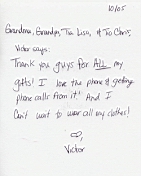 10/05
Grandma, Grandpa, Tia Lisa, & Tio Chris,
Victor says:
Thank you guys for ALL my
gifts! I love the phone & getting
phone calls from it! And I
can't wait to wear all my clothes!
Victor